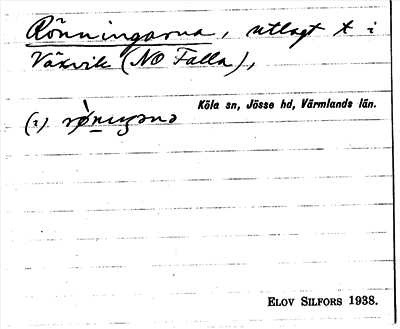 Rönningarna, utlagt t i
Växvik (NO Falla),
Köla sn, Jösse hd, Värmlands län.
(1)
ELOV SILFORS 1938.